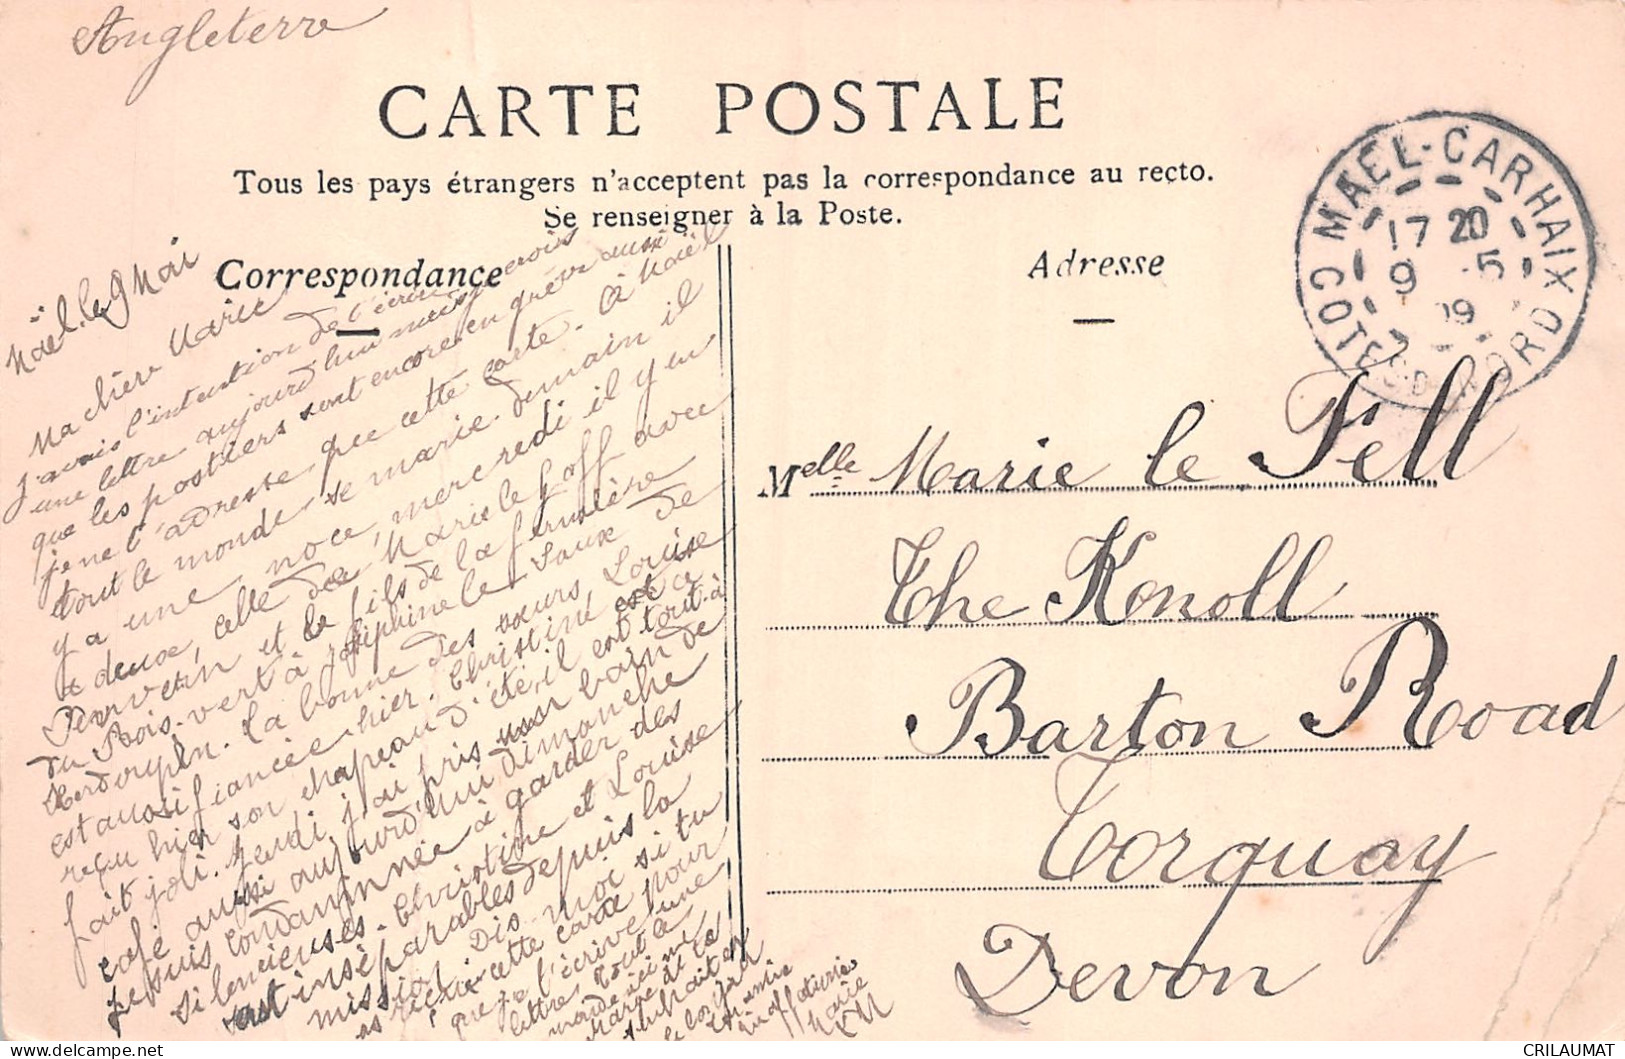 Angleterre
CARTE POSTALE
Tous les pays étrangers n'acceptent pas la correspondance au recto.
Se renseigner à la Poste.
Correspondance
Adresse
MAEL-CARHAIX
17 20
9 5
09
COTES-D NORD
Maël. le 9 Mai
Ma chère Marie
j'avais l'intention de t'écrire
une lettre aujourd'hui mais je crois
que les postiers sont encore en grève aussi
je ne t'adresse que cette carte. A Maël
tout le monde se marie. demain il
y a une noce, mercredi il y en
a deux, celle de Marie le Goff avec
et le fils de la fermière
du Bois-vert à Joséphine le Saux de
La bonne des sœurs Louise
est aussi fiancée hier. Christine a
reçu hier son chapeau d'été, il est tout à
fait joli. Jeudi j'ai pris un bain de
café aussi aujourd'hui dimanche
je suis condamnée à garder des
silencieuses. Christine et Louise
sont inséparables depuis la
mission. Dis-moi si tu
as reçu cette carte pour
que je t'écrive une
lettre. Tout le
monde ici me
charge de te
souhaiter
le bonjour
Marie
Melle Marie le Fell
The Knoll
Barton Road
Torquay
Devon
CRILAUMAT